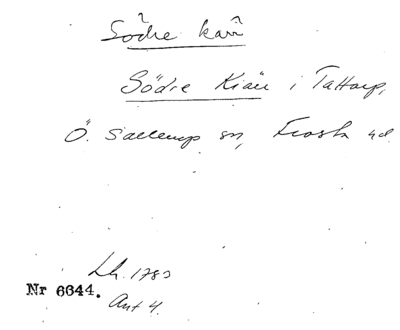 Södre kärr
Södre Kiärr i Tattarp,
Ö. Sallerup sn, Frosta hd
Lh. 1783
Nr 6644.
Akt 4.